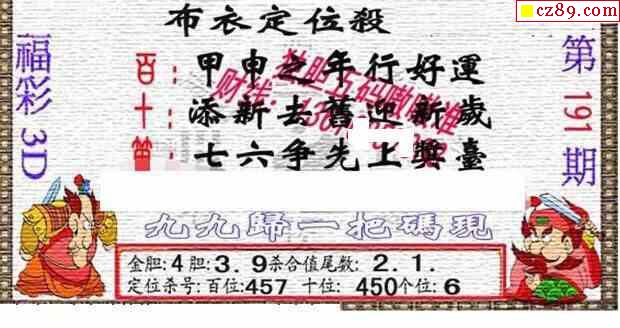 cz89.com
布衣定位殺
福彩3D
第191期
百：甲申之年行好運
十：添新去舊迎新歲
個：七六争先上獎臺
九九歸一把碼現
金胆:4胆:3.9杀合值尾数:2.1.
定位杀号:百位:457 十位:450个位:6